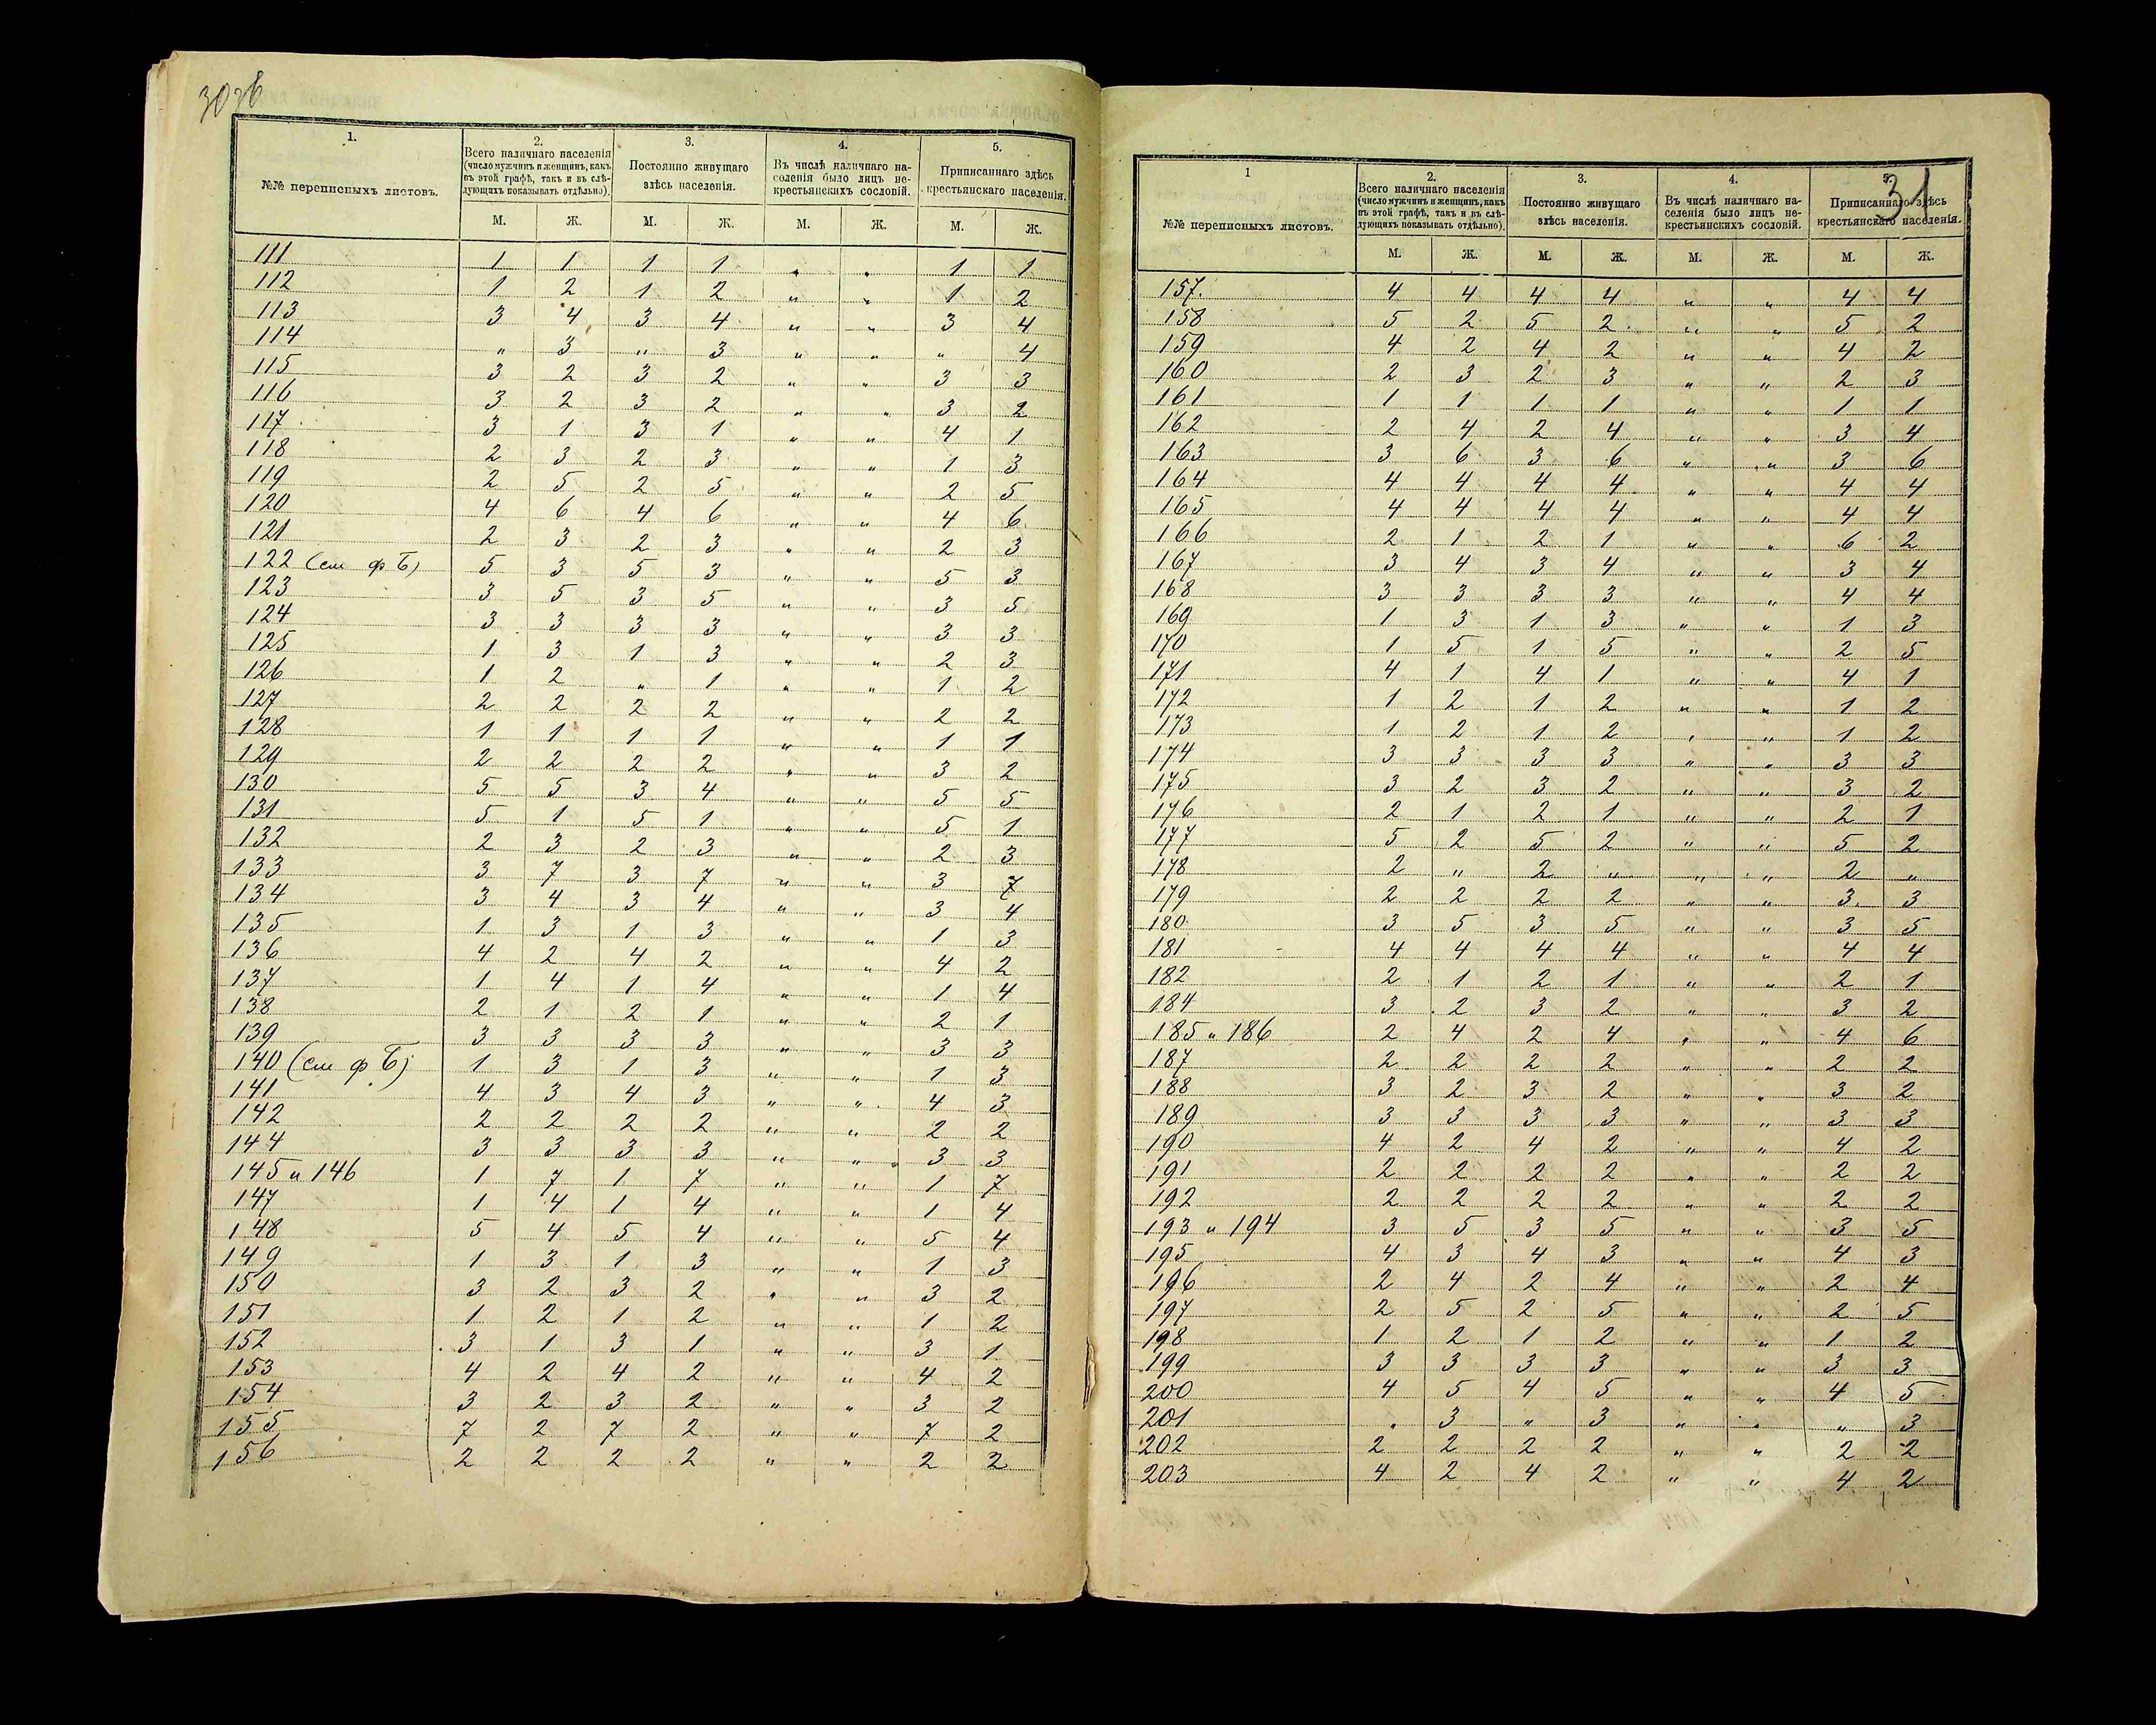 30 об
1. 2. 3. 4. 5.
№№ переписныхъ листовъ. Всего наличнаго населенія (число мужчинъ и женщинъ, какъ въ этой графѣ, такъ и въ слѣдующихъ показывать отдѣльно). Постоянно живущаго здѣсь населенія. Въ числѣ наличнаго населенія было лицъ некрестьянскихъ сословій. Приписаннаго здѣсь крестьянскаго населенія.
М. Ж. М. Ж. М. Ж. М. Ж.
111 1 1 1 1 „ „ 1 1
112 1 2 1 2 „ „ 1 2
113 3 4 3 4 „ „ 3 4
114 „ 3 „ 3 „ „ „ 4
115 3 2 3 2 „ „ 3 3
116 3 2 3 2 „ „ 3 2
117 3 1 3 1 „ „ 4 1
118 2 3 2 3 „ „ 1 3
119 2 5 2 5 „ „ 2 5
120 4 6 4 6 „ „ 4 6
121 2 3 2 3 „ „ 2 3
122 (см ф Б) 5 3 5 3 „ „ 5 3
123 3 5 3 5 „ „ 3 5
124 3 3 3 3 „ „ 3 3
125 1 3 1 3 „ „ 2 3
126 1 2 „ 1 „ „ 1 2
127 2 2 2 2 „ „ 2 2
128 1 1 1 1 „ „ 1 1
129 2 2 2 2 „ „ 3 2
130 5 5 3 4 „ „ 5 5
131 5 1 5 1 „ „ 5 1
132 2 3 2 3 „ „ 2 3
133 3 7 3 7 „ „ 3 7
134 3 4 3 4 „ „ 3 4
135 1 3 1 3 „ „ 1 3
136 4 2 4 2 „ „ 4 2
137 1 4 1 4 „ „ 1 4
138 2 1 2 1 „ „ 2 1
139 3 3 3 3 „ „ 3 3
140 (см ф Б) 1 3 1 3 „ „ 1 3
141 4 3 4 3 „ „ 4 3
142 2 2 2 2 „ „ 2 2
144 3 3 3 3 „ „ 3 3
145 и 146 1 7 1 7 „ „ 1 7
147 1 4 1 4 „ „ 1 4
148 5 4 5 4 „ „ 5 4
149 1 3 1 3 „ „ 1 3
150 3 2 3 2 „ „ 3 2
151 1 2 1 2 „ „ 1 2
152 3 1 3 1 „ „ 3 1
153 4 2 4 2 „ „ 4 2
154 3 2 3 2 „ „ 3 2
155 7 2 7 2 „ „ 7 2
156 2 2 2 2 „ „ 2 2
31
1 2. 3. 4. 5.
№№ переписныхъ листовъ. Всего наличнаго населенія (число мужчинъ и женщинъ, какъ въ этой графѣ, такъ и въ слѣдующихъ показывать отдѣльно). Постоянно живущаго здѣсь населенія. Въ числѣ наличнаго населенія было лицъ некрестьянскихъ сословій. Приписаннаго здѣсь крестьянскаго населенія.
М. Ж. М. Ж. М. Ж. М. Ж.
157. 4 4 4 4 „ „ 4 4
158 5 2 5 2 „ „ 5 2
159 4 2 4 2 „ „ 4 2
160 2 3 2 3 „ „ 2 3
161 1 1 1 1 „ „ 1 1
162 2 4 2 4 „ „ 3 4
163 3 6 3 6 „ „ 3 6
164 4 4 4 4 „ „ 4 4
165 4 4 4 4 „ „ 4 4
166 2 1 2 1 „ „ 6 2
167 3 4 3 4 „ „ 3 4
168 3 3 3 3 „ „ 4 4
169 1 3 1 3 „ „ 1 3
170 1 5 1 5 „ „ 2 5
171 4 1 4 1 „ „ 4 1
172 1 2 1 2 „ „ 1 2
173 1 2 1 2 „ „ 1 2
174 3 3 3 3 „ „ 3 3
175 3 2 3 2 „ „ 3 2
176 2 1 2 1 „ „ 2 1
177 5 2 5 2 „ „ 5 2
178 2 „ 2 „ „ „ 2 „
179 2 2 2 2 „ „ 3 3
180 3 5 3 5 „ „ 3 5
181 4 4 4 4 „ „ 4 4
182 2 1 2 1 „ „ 2 1
184 3 2 3 2 „ „ 3 2
185 и 186 2 4 2 4 „ „ 4 6
187 2 2 2 2 „ „ 2 2
188 3 2 3 2 „ „ 3 2
189 3 3 3 3 „ „ 3 3
190 4 2 4 2 „ „ 4 2
191 2 2 2 2 „ „ 2 2
192 2 2 2 2 „ „ 2 2
193 и 194 3 5 3 5 „ „ 3 5
195 4 3 4 3 „ „ 4 3
196 2 4 2 4 „ „ 2 4
197 2 5 2 5 „ „ 2 5
198 1 2 1 2 „ „ 1 2
199 3 3 3 3 „ „ 3 3
200 4 5 4 5 „ „ 4 5
201 „ 3 „ 3 „ „ „ 3
202 2 2 2 2 „ „ 2 2
203 4 2 4 2 „ „ 4 2